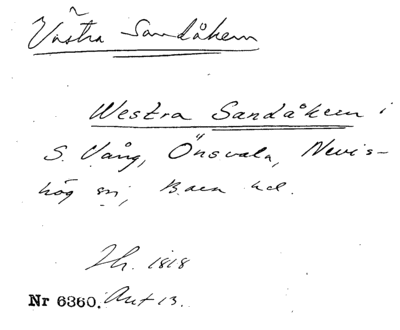 Västra Sandåkern
Westra Sandåkern i
S. Vång, Önsvala, Nevis-
hög sn, Bara hd.
Lh. 1818
Nr 6360. Akt 13.